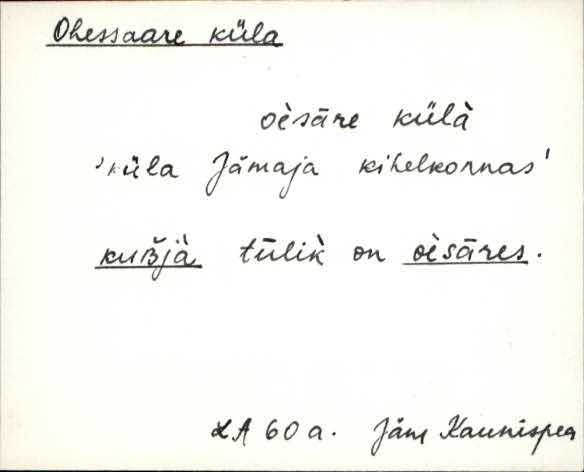 Ohessaare küla
oèsāre külà
'küla Jämaja kihelkonnas'
kuB̌jà tūlik̀ on oèsāres.
LA 60 a. Jäm Kaunispea